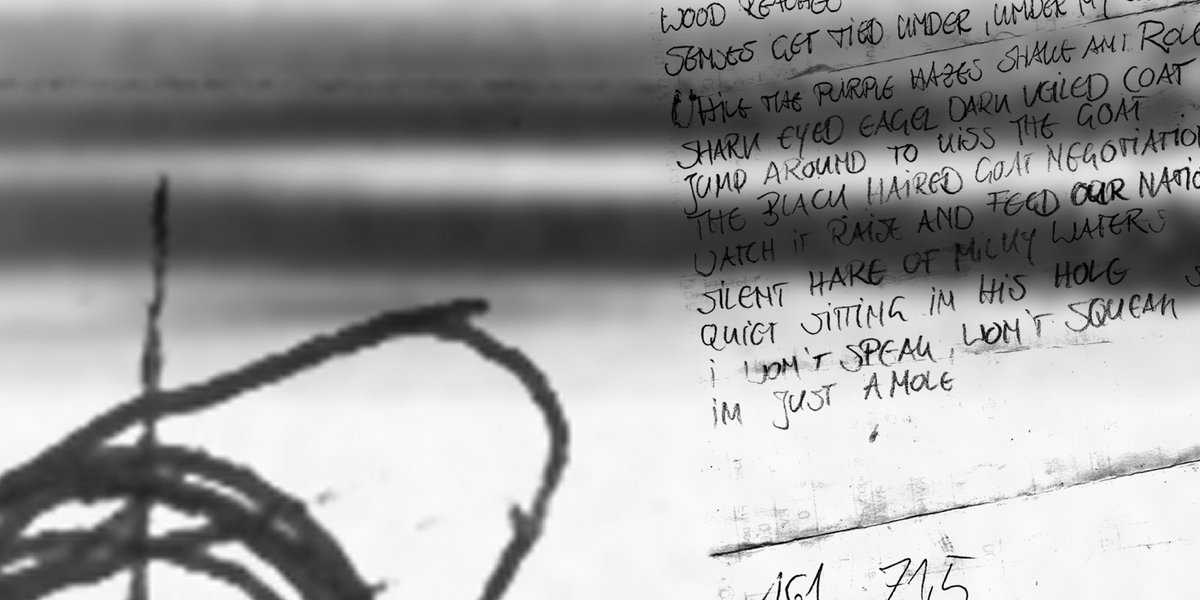 WOOD REACHED
SENSES GET TIED UNDER, UNDER MY
WHILE THE PURPLE HAZES SHAKE AND ROLE
SHARK EYED EAGEL DARK VEILED COAT
JUMP AROUND TO KISS THE GOAT
THE BLACK HAIRED GOAT NEGOTIATION
WATCH iT RAISE AND FEED OUR NATIO
SiLENT HARE OF MiLKY WATERS
QUiET SiTTiNG iN HiS HOLE S
i WON'T SPEAK, WON'T SQUEAK
iM JUST A MOLE
161 71,5